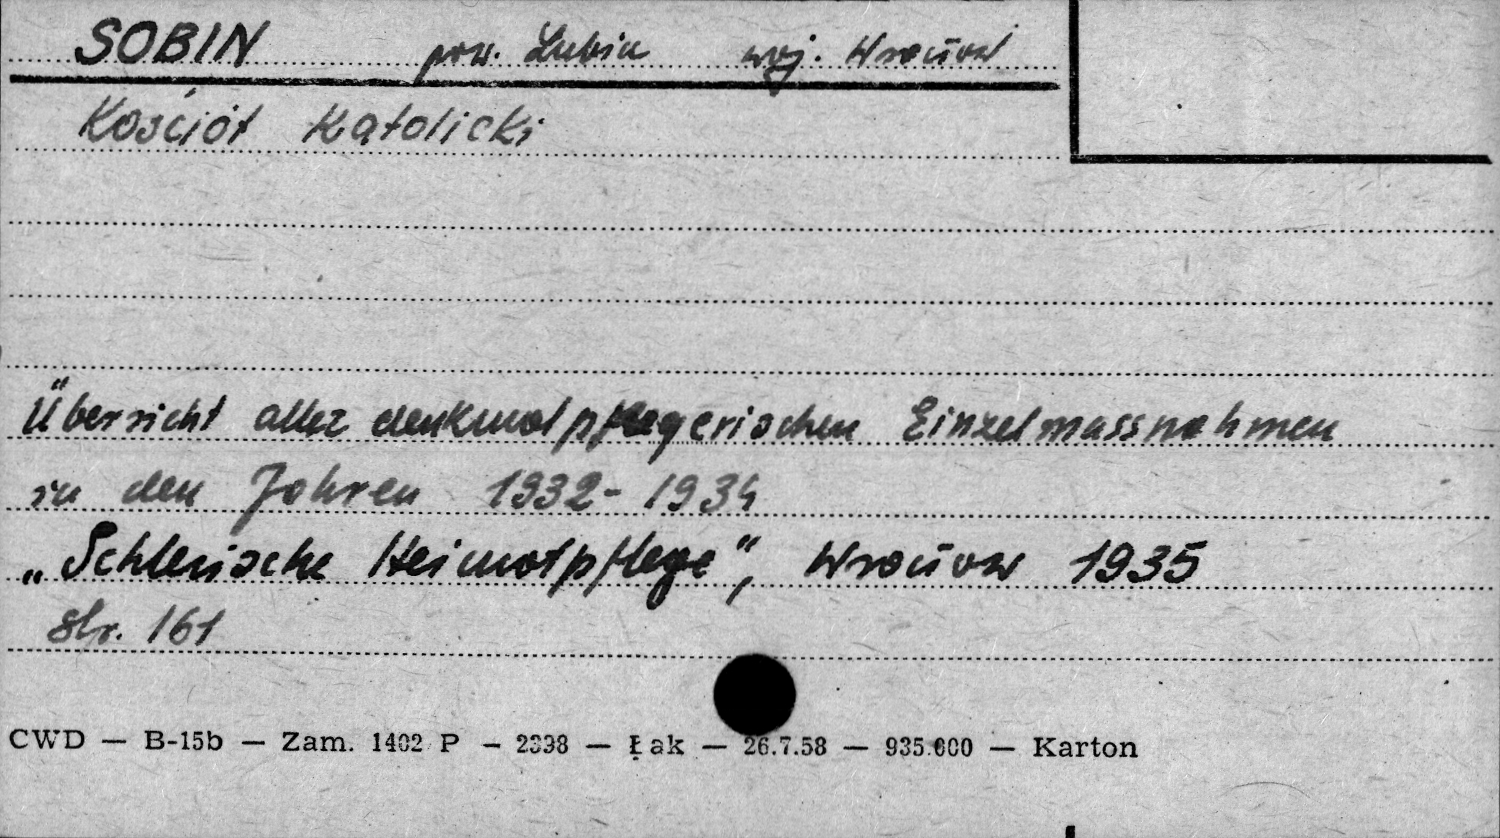 SOBIN pow. Lubin woj. Wrocław
Kościół Katolicki
Übersicht aller denkmalpflegerischen Einzelmassnahmen
in den Jahren 1932-1934
„Schlesische Heimatpflege", Wrocław 1935
str. 161
CWD — B-15b — Zam. 1402 P — 2338 — Łak — 26.7.58 — 935.000 — Karton